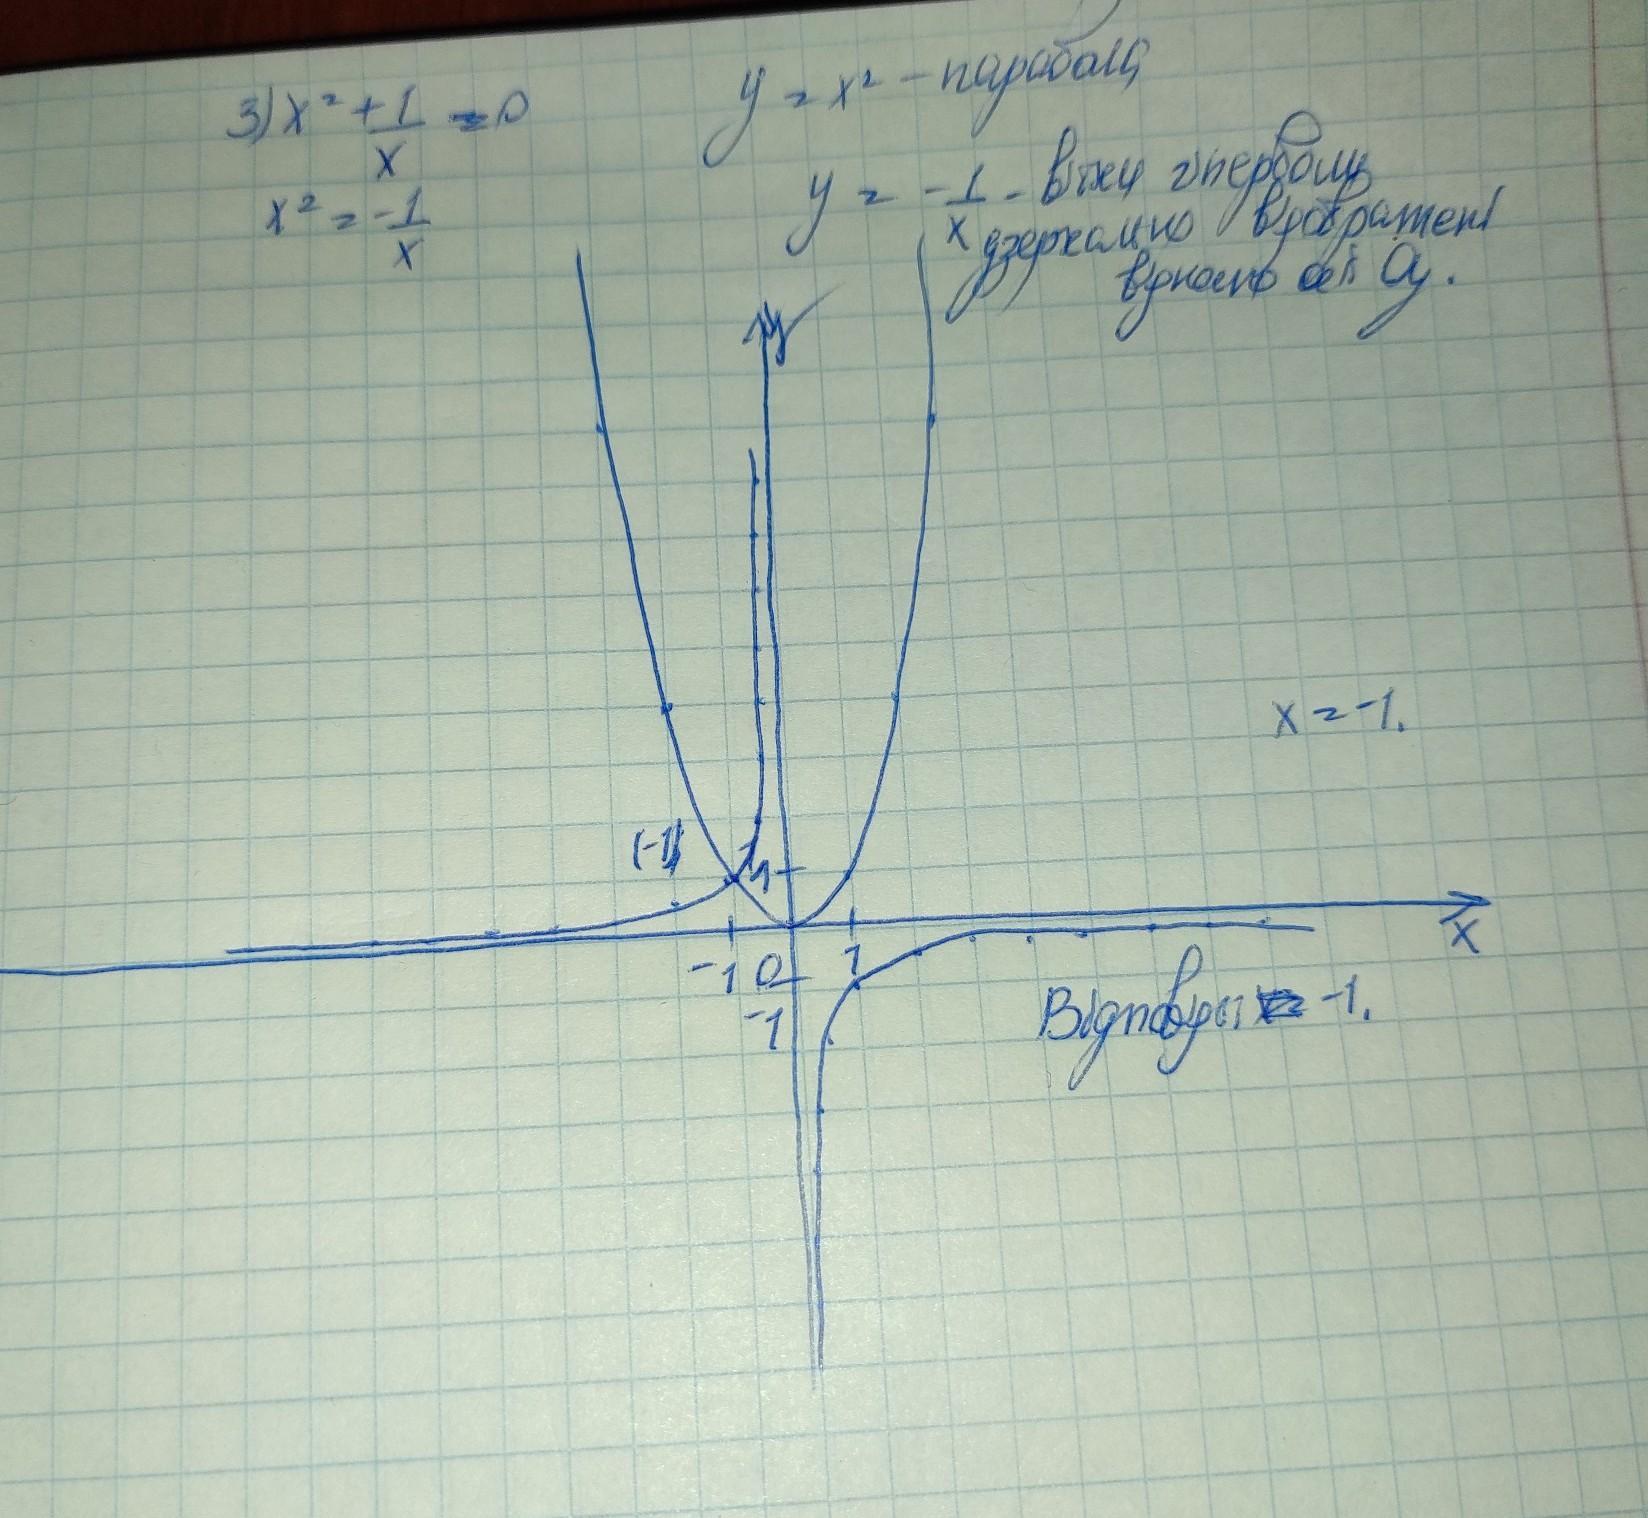 3) x² + 1/x = 0
x² = -1/x
y = x² - парабола
y = -1/x - вітки гіперболи
дзеркально відображені
відносно осі Oy.
y
x = -1.
(-1)
1
x
-1 0 1
-1
Відповідь: -1.